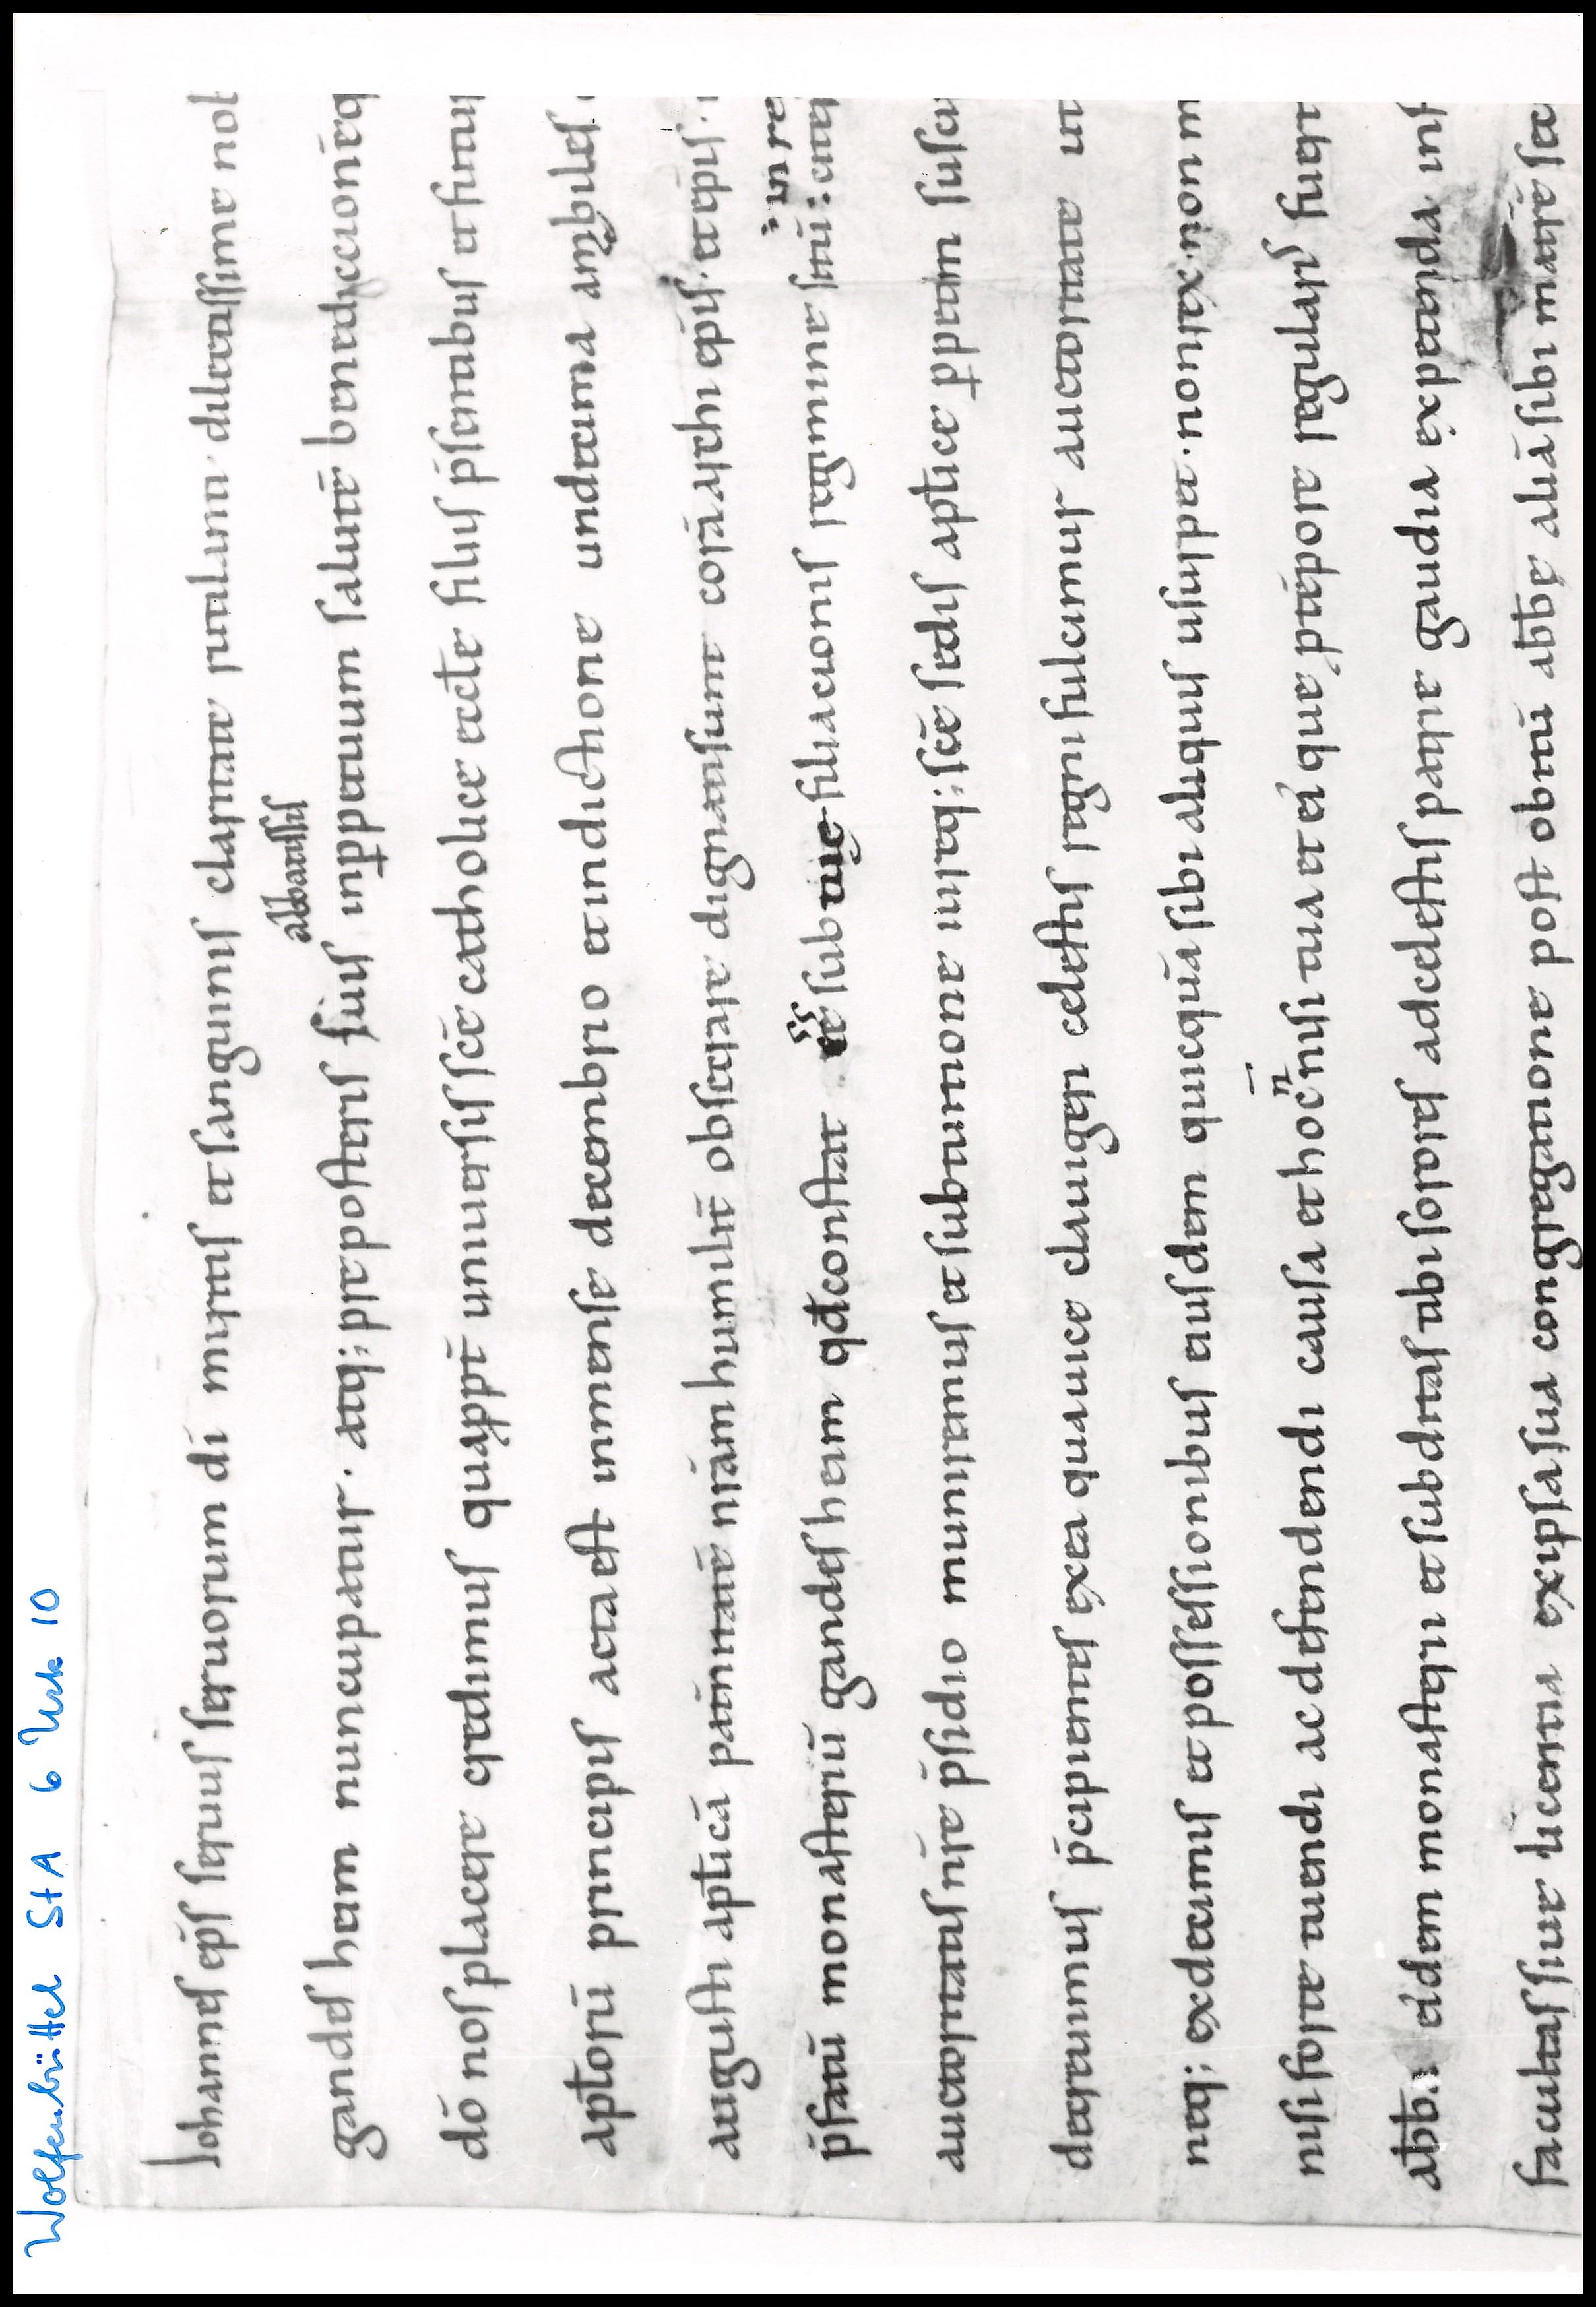 Wolfenbüttel StA 6 Urk 10
Iohannes ep̄s seruus seruorum dī meritis et sanguinis claritate rutilanti · dilectissime nob
abbatissis
gandes heim nuncupatur · atq; preposteris suis inp̱petuum salutē benedictionēq
dō nos placere credimus quapp̄t uniuersis scē catholice eccłe filiis p̄sentibus et futuri
apłorū principis acta est inmense decembrio et indictione undecima ambiles ·
augusti apłicā paternitatē nr̄am humilit̄ obsecrare dignati sunt corā archi ep̄is · et ep̄is ·
in re
p̄fatū monasteriū gandes heim qđ constat eē sub tue filiacionis regimine sitū : cuiq
auctoritatis nr̄e p̄sidio muniremus et sub tuitione iurisq; scē sedis apłice p̱petem susci
decreuimus p̄cipientes ex ea qua uice clauigeri celestis regni fulcimur auctoritate ut
neq; ex decimis et possessionibus eiusdem quicquā sibi aliquis usurpet · non rex · non m
nisi forte tuendi ac defendendi causa et hoc n̄ nisi tua et ei que p̄ tēpore regularis fuerit
abb̄ · eidem monasterii et subditas ubi sorores ad celestis patrie gaudia expetenda inst
facultas siue licentia ex ipsa sua congregatione post obitū abb̄e aliā sibi matrē sec